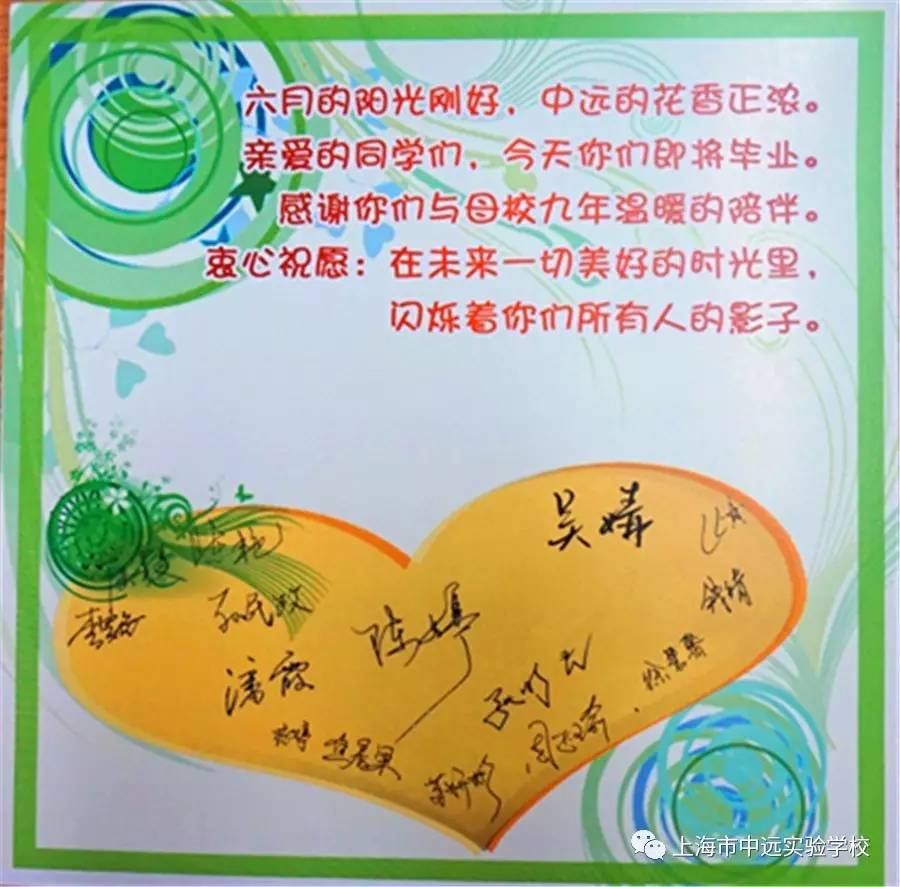 六月的阳光刚好，中远的花香正浓。
亲爱的同学们，今天你们即将毕业。
感谢你们与母校九年温暖的陪伴。
衷心祝愿：在未来一切美好的时光里，
闪烁着你们所有人的影子。
吴婧
陈婷
潘霞
上海市中远实验学校